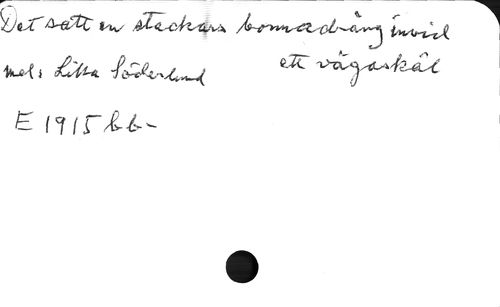 Det satt en stackars bonnadräng invid
ett vägaskäl
mel: Lilla Söderlund
E 1915 bb-